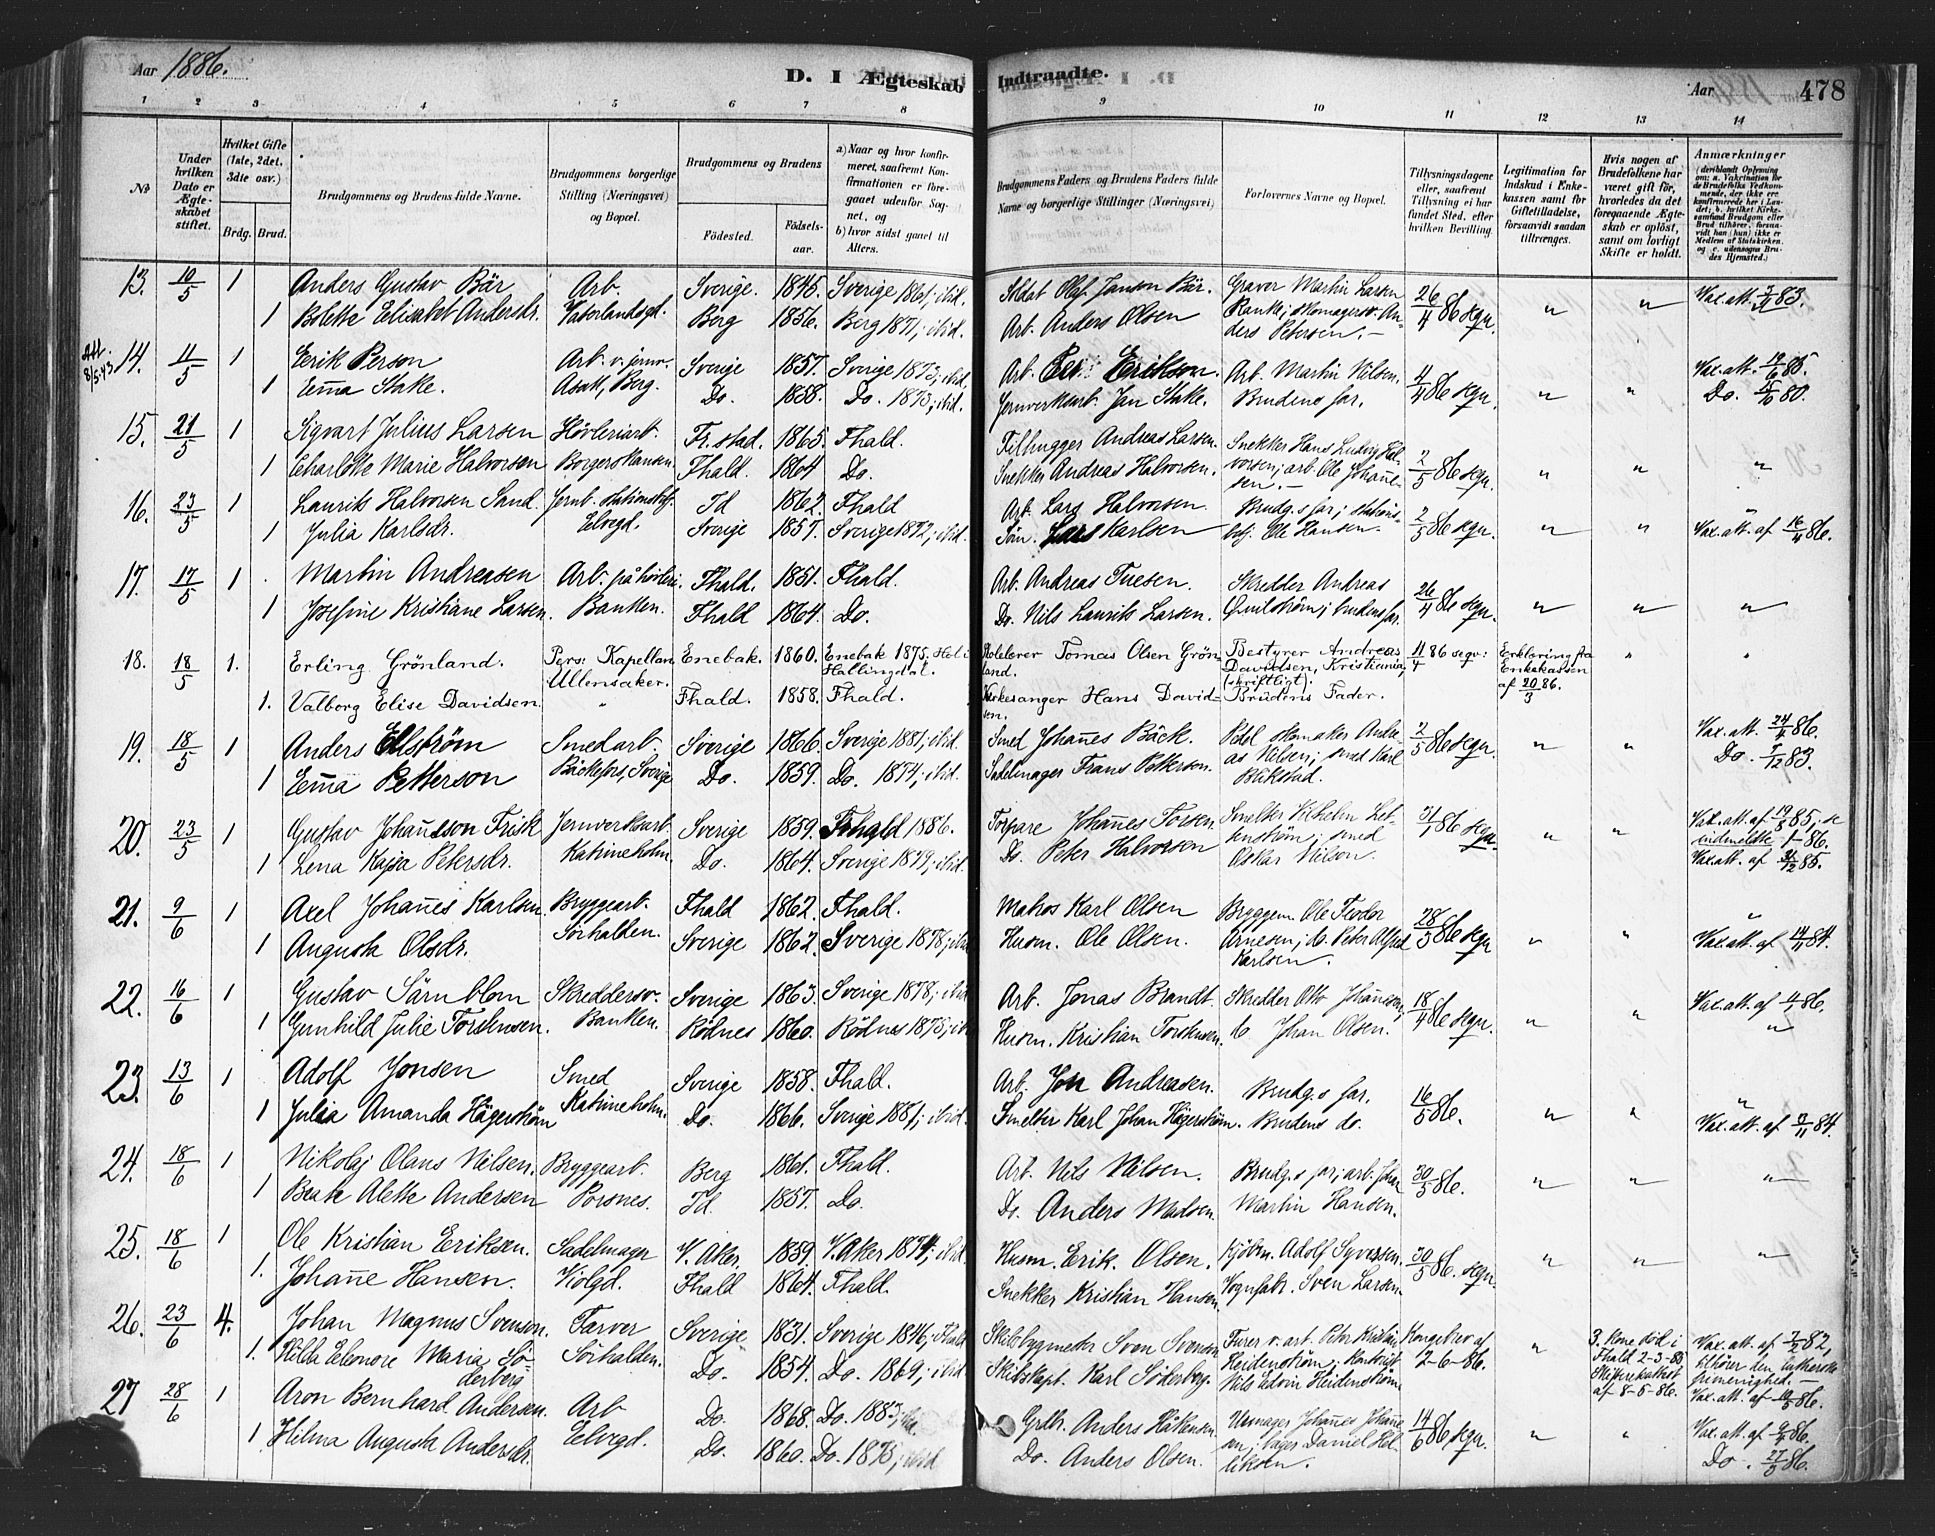 Aar 1886.
D. I Ægteskab Indtraadte.
Aar 478
1 2 3 4 5 6 7 8 9 10 11 12 13 14
No
Under hvilken Dato er Ægteskabet stiftet.
Hvilket Gifte (1ste, 2det, 3die osv.)
Brdg. Brud.
Brudgommens og Brudens fulde Navne.
Brudgommens borgerlige Stilling (Næringsvei) og Bopæl.
Brudgommens og Brudens
Fødested. Fødselsaar.
a) Naar og hvor konfirmeret, saafremt Konfirmationen er foregaaet udenfor Sognet, og
b) hvor sidst gaaet til Alters.
Brudgommens Faders og Brudens Faders fulde Navne og borgerlige Stillinger (Næringsvei)
Forlovernes Navne og Bopæl.
Tillysningsdagene eller, saafremt Tillysning ei har fundet Sted, efter hvilken Bevilling.
Legitimation for Indskud i Enkekassen samt for Giftetilladelse, forsaavidt saadan tiltrænges.
Hvis nogen af Brudefolkene har været gift før, hvorledes da det foregaaende Ægteskab er opløst, samt om lovligt Skifte er holdt.
Anmærkninger
13. 10/5 1 Anders Gustav Bär Arb. Sverige. 1845. Sverige 1861; ibid. Soldat Olaf Janson Bär. Graver Martin Larsen 26/4 86 seqv. " " Vax. att.
1 Bolette Elisabet Andersdr. Vaterlandsgd. Berg 1856. Berg 1871; ibid. Arb. Anders Olsen Ranke; skomagersv. Anders Petersen.
Att. 8/5-43 14. 11/5 1 Eerik Person Arb. v. jernv. Sverige 1857. Sverige 1873; ibid. Arb. Erikson. Arb. Martin Nilsen. 4/4 86 seqv. " " Vax. att. 85.
1 Emma Stake. Asak, Berg. Do. 1858. Do. 1873; ibid. Jernverksarb. Jan Stake. Brudens far. Do. 80.
15. 21/5 1 Sigvart Julius Larsen Hövleriarb. Fr.stad. 1865. Fhald. Tilhugger Andreas Larsen. Snekker Hans Ludvig Halvorsen; arb. Ole Johannesen. 2/5 86 seqv. " " "
1 Charlotte Marie Halvorsen Borgerskansen. Fhald. 1864 Do. Snekker Andreas Halvorsen.
16. 23/5 1 Laurits Halvorsen Sand. Jernb. stationsbtj. Id 1862. Fhald Arb. Lars Halvorsen. Brudg.s far; stationsbtj. Ole Hansen. 2/5 86 seqv. " " "
1 Julia Karlsdr. Elvegd. Sverige 1857. Sverige 1872; ibid. Lars Karlsen Vax. att. af 16/4 86.
17. 17/5 1 Martin Andreasen Arb. på hövleri. Fhald. 1851. Fhald. Arb. Andreas Tuesen. Skredder Andreas Qvilström; brudens far. 26/4 86 seqv. " " "
1 Josefine Kristiane Larsen. Banken. Fhald 1864. Do. Do. Nils Laurits Larsen.
18. 18/5 1. Erling Grönland. Pers: Kapellan Enebak. 1860. Enebak 1875. Hol i Hallingdal. Skolelærer Tomas Olsen Grönland. Bestyrer Andreas Davidsen, Kristiania, (skriftligt). 11/4 86 seqv: Erklæring fra Enkekassen af 20/3 86. " "
1. Valborg Elise Davidsen. Ullensaker. Fhald. 1858. Fhald. Kirkesanger Hans Davidsen. Brudens Fader.
19. 18/5 1 Anders Ellström Smedarb. Sverige 1866. Sverige 1881; ibid. Smed Johannes Bäck. Pedel skomaker Andreas Nilsen; smed Karl Blikstad. 2/5 86 seqv. " " Vax. att. 24/4 86.
1 Emma Petterson Bäckefors, Sverige Do. 1859. Do. 1874; ibid. Sadelmager Frans Petterson. Do. 83.
20. 23/5 1 Gustav Johansson Frisk Jernverksarb. Sverige 1859. Fhald 1886. Torpare Johannes Torsen. Smelter Vilhelm Letsenström; smed Oskar Nilson. 31/1 86 seqv. " " Vax. att. af 19/8 85; se indmeldte 1-86.
1 Lena Kajsa Petersdr. Katrineholm. Do. 1864. Sverige 1879; ibid. Do. Peter Halvorsen Vax. att. af 85.
21. 9/6 1 Axel Johannes Karlsen. Bryggearb. Fhald 1862. Fhald. Matros Karl Olsen Bryggem. Ole Teodor Arnesen; do. Peter Alfred Karlsen. 28/3 86 seqv " " "
1 Augusta Olsdr. Sörhalden. Sverige 1862. Sverige 1878; ibid Husm. Ole Olsen. Vax. att. af 14/11 84.
22. 16/6 1 Gustav Särnblom Skreddersv. Sverige 1863. Sverige 1878; ibid Arb. Jonas Brandt. Skredder Otto Johannesen; 18/4 86 seqv. " " Vax. att. af 86.
1 Gunhild Julie Torstensen. Banken. Rödnes 1860. Rödnes 1875; ibid Husm. Kristian Torstensen. do. Johan Olsen. "
23. 13/6 1 Adolf Jonsen Smed Sverige 1858. Fhald. Arb. Jon Andreasen. Brudg.s far. 16/5 86. " " "
1 Julia Amanda Hägerström Katrineholm. Do. 1866. Sverige 1881; ibid. Smelter Karl Johan Hägerström. Brudens do. Vax. att. af 84.
24. 18/6 1 Nikolaj Olaus Nilsen. Bryggearb. Berg 1861. Fhald. Arb. Nils Nilsen. Brudg.s far; arb. Johan 30/5 86. " " "
1 Beate Alette Andersen Porsnes. Id. 1857. Do. Do. Anders Madsen. Martin Hansen.
25. 18/6 1 Ole Kristian Eriksen. Sadelmager V. Aker. 1859. V. Aker 1874; ibid Husm. Erik Olsen. Kjöbm. Adolf Syversen. 30/5 86. seqv. " " "
1. Johanne Hansen. Violgd. Fhald 1864. Fhald. Snekker Kristian Hansen. Vognfabr. Sven Larsen.
26. 23/6 4. Johan Magnus Svenson. Farver Sverige 1831. Sverige 1846; Fhald Skibsbygmester Sven Svenson Furer v. art. Peter Kristian Heidenström; kontorist Nils Edvin Heidenström. Kongebrev af 2-6-86. " 3. kone död i Fhald 2-3-85 Skifterettsattest af 8-5-86. Vax. att. af 82, tilhører den lutherske frimenighed.
1. Hilda Eleonore Maria Söderberg Sörhalden. Do. 1854. Do. 1869; ibid Skibskapt. Karl Söderberg. Vax. att. af 86.
27 28/6 1 Aron Bernhard Andersen. Arb Do. 1868. Do. 1883; ibid. Grdbr. Anders Håkansen. Urmager Johannes Johannesen; bager Daniel Felliksen. 14/6 86, seqv. " " Vax. att. af 86.
1 Hilma Augusta Andersdr. Elvegd. Do. 1860. Do. 1875; ibid Do. Anders Olsen. Do. 86.